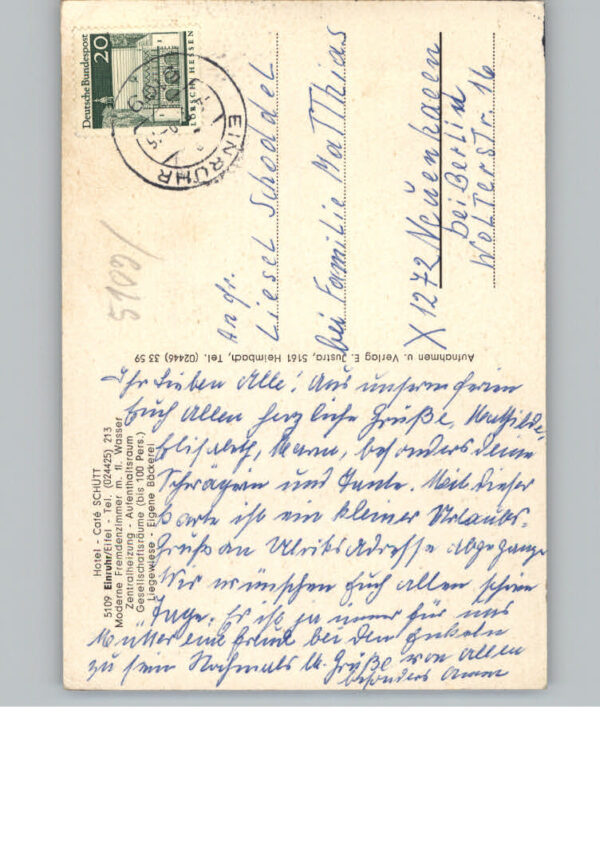 Deutsche Bundespost
20
LORSCH HESSEN
EINRUHR
5109/
An Fr.
Liesel Schoddel
bei Familie Matthias
X 1272 Neuenhagen
bei Berlin
Wolterstr. 16
Aufnahmen u. Verlag E. Justra, 5161 Heimbach, Tel. (02446) 33 59
Hotel - Café SCHÜTT
5109 Einruhr/Eifel - Tel. (024425) 213
Moderne Fremdenzimmer m. fl. Wasser
Zentralheizung - Aufenthaltsraum
Gesellschaftsräume (bis 100 Pers.)
Liegewiese - Eigene Bäckerei
Ihr Lieben Alle! Aus unseren Ferien
Euch Allen herzliche Grüße, Mathilde,
Elisabeth, besonders Deine
Schwägerin und Tante. Mit dieser
Karte ist ein kleiner Urlaubs-
Gruß an Ulrichs Adresse abgegangen
Wir wünschen Euch allen schöne
Tage. Es ist ja immer für uns
Mütter eine Freude bei den Enkeln
zu sein Nochmals Grüße von Allen
besonders